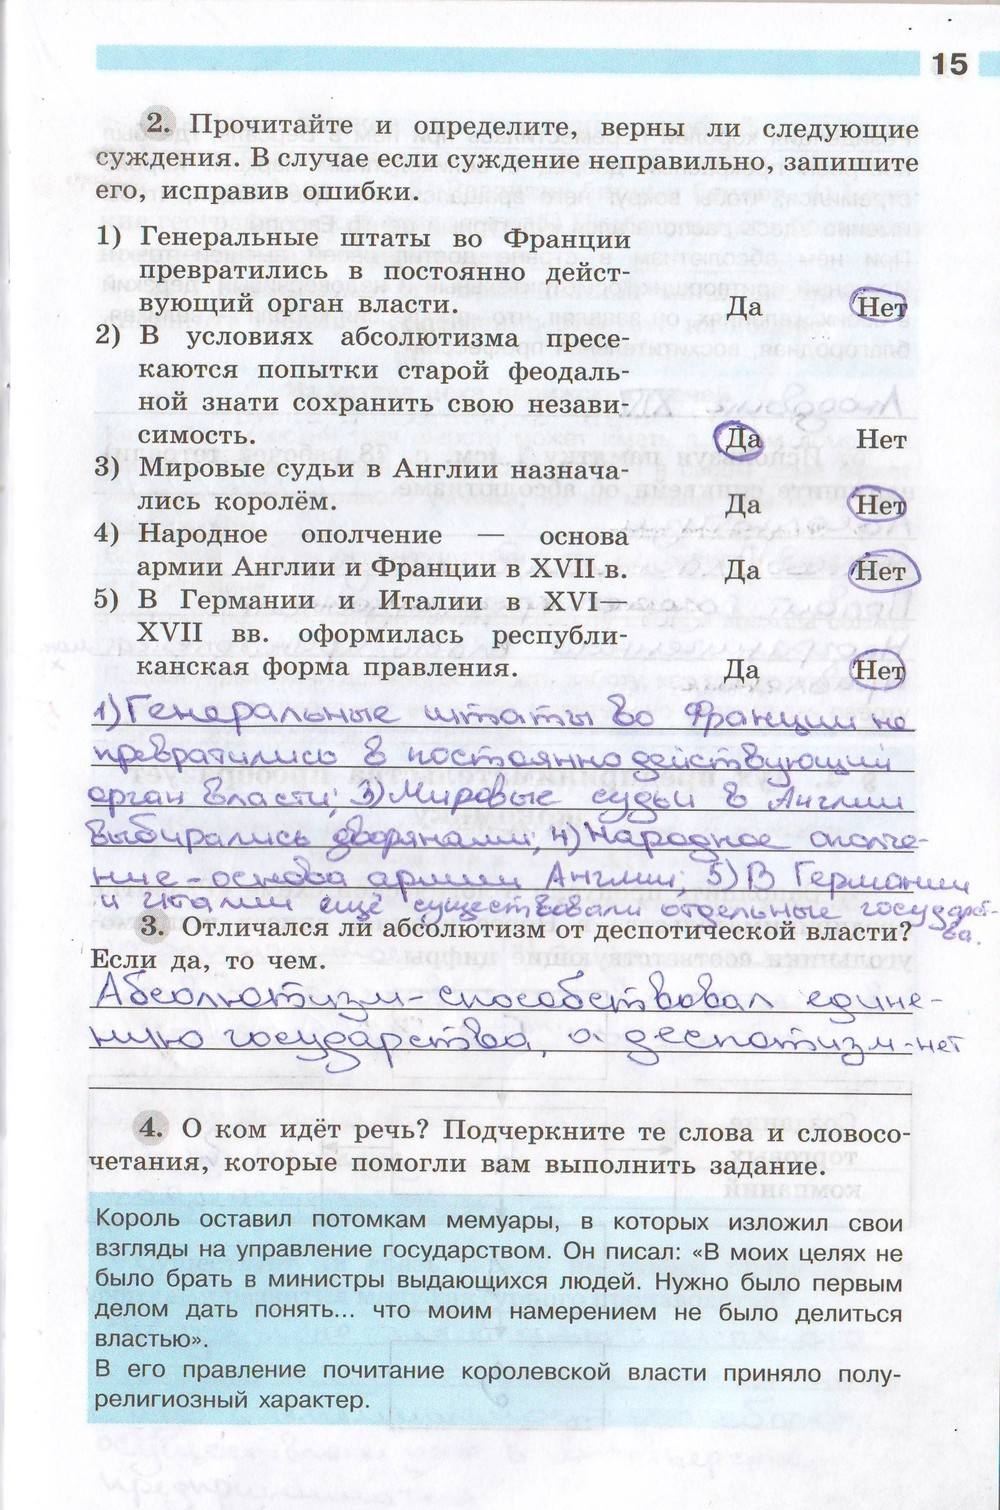 15
2. Прочитайте и определите, верны ли следующие
суждения. В случае если суждение неправильно, запишите
его, исправив ошибки.
1) Генеральные штаты во Франции
превратились в постоянно дейст-
вующий орган власти. Да Нет
2) В условиях абсолютизма пресе-
каются попытки старой феодаль-
ной знати сохранить свою незави-
симость. Да Нет
3) Мировые судьи в Англии назнача-
лись королём. Да Нет
4) Народное ополчение — основа
армии Англии и Франции в XVII в. Да Нет
5) В Германии и Италии в XVI—
XVII вв. оформилась республи-
канская форма правления. Да Нет
1) Генеральные штаты во Франции не
превратились в постоянно действующий
орган власти; 3) Мировые судьи в Англии
выбирались дворянами; 4) Народное ополче-
ние - основа армии Англии; 5) В Германии
и Италии ещё существовали отдельные государст-
ва.
3. Отличался ли абсолютизм от деспотической власти?
Если да, то чем.
Абсолютизм - способствовал едине-
нию государства, а деспотизм - нет
4. О ком идёт речь? Подчеркните те слова и словосо-
четания, которые помогли вам выполнить задание.
Король оставил потомкам мемуары, в которых изложил свои
взгляды на управление государством. Он писал: «В моих целях не
было брать в министры выдающихся людей. Нужно было первым
делом дать понять... что моим намерением не было делиться
властью».
В его правление почитание королевской власти приняло полу-
религиозный характер.